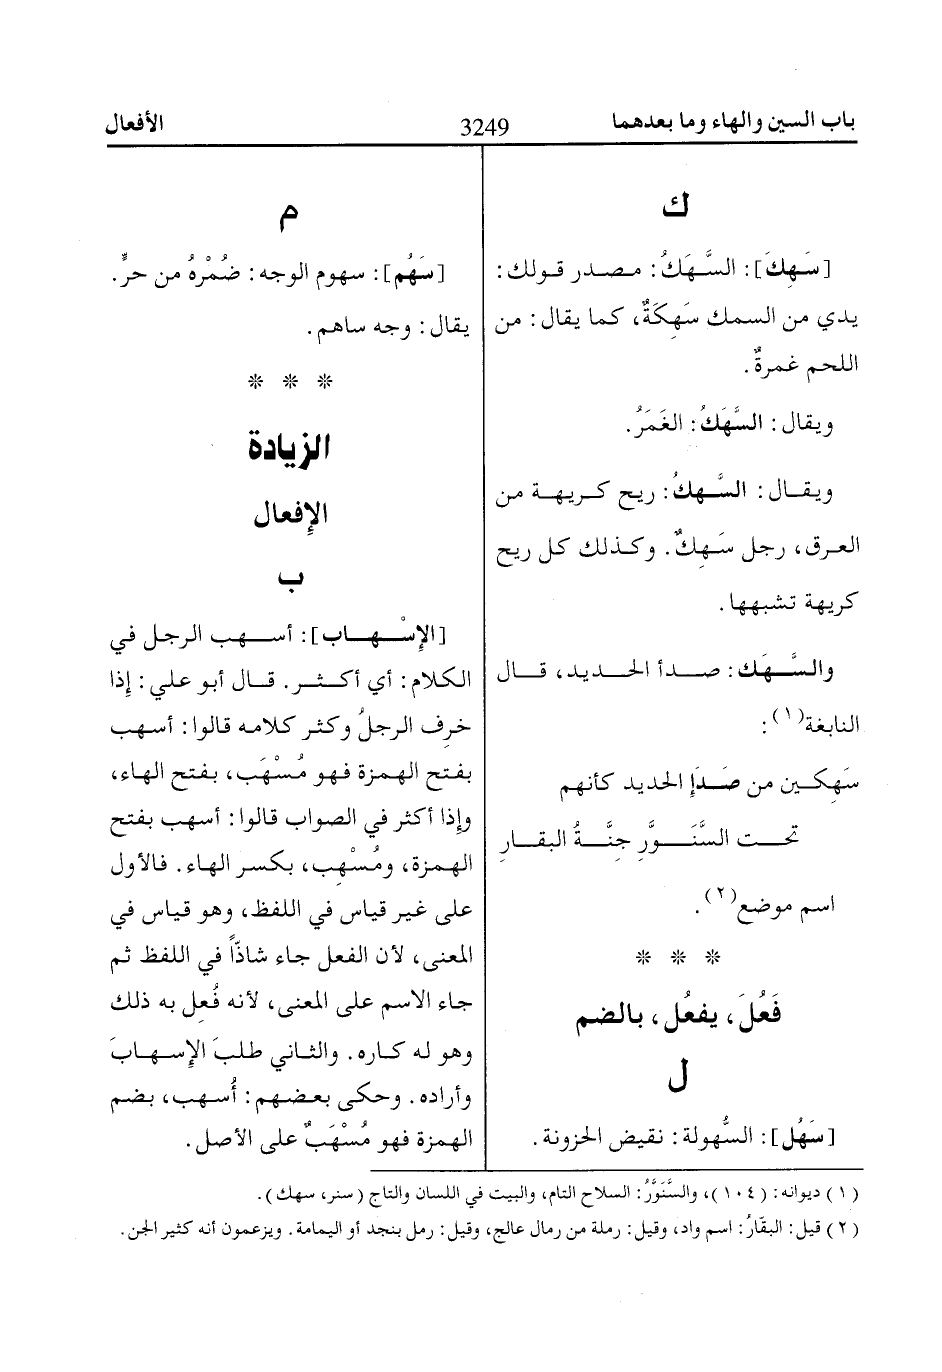 باب السين والهاء وما بعدهما
3249
الأفعال
ك
[سَهِكَ]: السَّهَكُ: مصدر قولك:
يدي من السمك سَهِكَةٌ، كما يقال: من
اللحم غمرةٌ.
ويقال: السَّهَكُ: الغَمَرُ.
ويقال: السَّهكُ: ريح كريهة من
العرق، رجل سَهِكٌ. وكذلك كل ريح
كريهة تشبهها.
والسَّهَك: صدأ الحديد، قال
النابغة(١):
سَهِكين من صَدَإِ الحديد كأنهم
تحت السَّنَوَّرِ جِنَّةُ البقار
اسم موضع(٢).
* * *
فَعُلَ، يفعُل، بالضم
ل
[سَهُل]: السُّهولة: نقيض الحزونة.
م
[سَهُم]: سهوم الوجه: ضُمْرهُ من حرٍّ.
يقال: وجه ساهم.
* * *
الزيادة
الإفعال
ب
[الإسْهاب]: أسهب الرجل في
الكلام: أي أكثر. قال أبو علي: إذا
خرِف الرجلُ وكثر كلامه قالوا: أسهب
بفتح الهمزة فهو مُسْهَب، بفتح الهاء،
وإذا أكثر في الصواب قالوا: أسهب بفتح
الهمزة، ومُسْهِب، بكسر الهاء. فالأول
على غير قياس في اللفظ، وهو قياس في
المعنى، لأن الفعل جاء شاذّاً في اللفظ ثم
جاء الاسم على المعنى، لأنه فُعِل به ذلك
وهو له كاره. والثاني طلبَ الإسهابَ
وأراده. وحكى بعضهم: أُسهب، بضم
الهمزة فهو مُسْهَبٌ على الأصل.
(١) ديوانه: (١٠٤)، والسَّنَوَّرُ: السلاح التام، والبيت في اللسان والتاج (سنر، سهك).
(٢) قيل: البقّارُ: اسم واد، وقيل: رملة من رمال عالج، وقيل: رمل بنجد أو اليمامة. ويزعمون أنه كثير الجن.